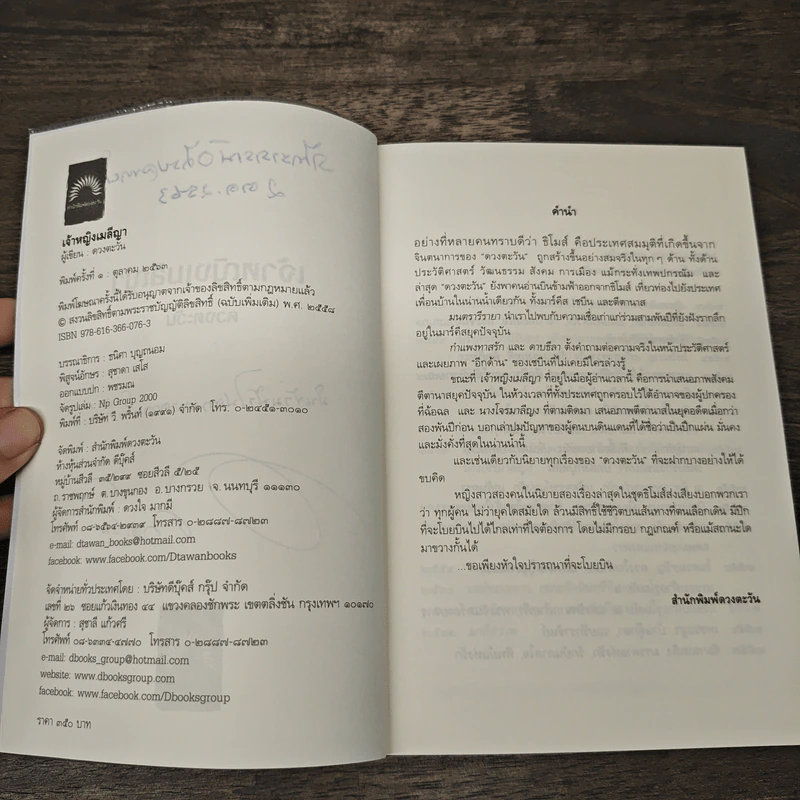 เจ้าหญิงเมลีญา
ผู้เขียน : ดวงตะวัน
พิมพ์ครั้งที่ ๑ : ตุลาคม ๒๕๖๓
พิมพ์โฆษณาครั้งนี้ได้รับอนุญาตจากเจ้าของลิขสิทธิ์ตามกฎหมายแล้ว
© สงวนลิขสิทธิ์ตามพระราชบัญญัติลิขสิทธิ์ (ฉบับเพิ่มเติม) พ.ศ. ๒๕๕๘
ISBN 978-616-366-076-3
บรรณาธิการ : ชนิศา บุญถนอม
พิสูจน์อักษร : สุชาดา เสโส
ออกแบบปก : พชรมณ
จัดรูปเล่ม : Np Group 2000
พิมพ์ที่ : บริษัท วี. พริ้นท์ (๑๙๙๑) จำกัด โทร. ๐-๒๔๕๑-๓๐๑๐
จัดพิมพ์ : สำนักพิมพ์ดวงตะวัน
ห้างหุ้นส่วนจำกัด ดีบุ๊คส์
หมู่บ้านสีวลี ๓๕/๒๙๙ ซอยสีวลี ๕/๒๕
ถ.ราชพฤกษ์ ต.บางขุนกอง อ.บางกรวย จ.นนทบุรี ๑๑๑๓๐
ผู้จัดการสำนักพิมพ์ : ดวงใจ มากมี
โทรศัพท์ ๐๘-๖๕๔๔-๒๙๓๙ โทรสาร ๐-๒๘๘๗-๘๗๒๓
e-mail: dtawan_books@hotmail.com
facebook: www.facebook.com/Dtawanbooks
จัดจำหน่ายทั่วประเทศโดย : บริษัทดีบุ๊คส์ กรุ๊ป จำกัด
เลขที่ ๒๖ ซอยแก้วเงินทอง ๔๔ แขวงคลองชักพระ เขตตลิ่งชัน กรุงเทพฯ ๑๐๑๗๐
ผู้จัดการ : สุชาลี แก้วศรี
โทรศัพท์ ๐๘-๖๓๓๔-๕๗๗๐ โทรสาร ๐-๒๘๘๗-๘๗๒๓
e-mail: dbooks_group@hotmail.com
website: www.dbooksgroup.com
facebook: www.facebook.com/Dbooksgroup
ราคา ๓๕๐ บาท
คำนำ
อย่างที่หลายคนทราบดีว่า ชิโมส์ คือประเทศสมมุติที่เกิดขึ้นจาก
จินตนาการของ "ดวงตะวัน" ถูกสร้างขึ้นอย่างสมจริงในทุก ๆ ด้าน ทั้งด้าน
ประวัติศาสตร์ วัฒนธรรม สังคม การเมือง แม้กระทั่งเทพปกรณัม และ
ล่าสุด "ดวงตะวัน" ยังพาคนอ่านบินข้ามฟ้าออกจากชิโมส์ เที่ยวท่องไปยังประเทศ
เพื่อนบ้านในน่านน้ำเดียวกัน ทั้งมาร์คีส เซบีน และตีตานาส
มนตราวีรายา นำเราไปพบกับความเชื่อเก่าแก่ร่วมสามพันปีที่ยังฝังรากลึก
อยู่ในมาร์คีสยุคปัจจุบัน
กำแพงทาสรัก และ ดาบซีลา ตั้งคำถามต่อความจริงในหน้าประวัติศาสตร์
และเผยภาพ "อีกด้าน" ของเซบีนที่ไม่เคยมีใครล่วงรู้
ขณะที่ เจ้าหญิงเมลีญา ที่อยู่ในมือผู้อ่านเวลานี้ คือการนำเสนอภาพสังคม
ตีตานาสยุคปัจจุบัน ในห้วงเวลาที่ทั้งประเทศถูกครอบไว้ใต้อำนาจของผู้ปกครอง
ที่ฉ้อฉล และ นางโจรมาลีญง ที่ตามติดมา เสนอภาพตีตานาสในยุคอดีตเมื่อกว่า
สองพันปีก่อน บอกเล่าปมปัญหาของผู้คนบนดินแดนที่ได้ชื่อว่าเป็นปึกแผ่น มั่นคง
และมั่งคั่งที่สุดในน่านน้ำนี้
และเช่นเดียวกับนิยายทุกเรื่องของ "ดวงตะวัน" ที่จะฝากบางอย่างให้ได้
ขบคิด
หญิงสาวสองคนในนิยายสองเรื่องล่าสุดในชุดชิโมส์ส่งเสียงบอกพวกเรา
ว่า ทุกผู้คน ไม่ว่ายุคใดสมัยใด ล้วนมีสิทธิ์ใช้ชีวิตบนเส้นทางที่ตนเลือกเดิน มีปีก
ที่จะโบยบินไปได้ไกลเท่าที่ใจต้องการ โดยไม่มีกรอบ กฎเกณฑ์ หรือแม้สถานะใด
มาขวางกั้นได้
...ขอเพียงหัวใจปรารถนาที่จะโบยบิน
สำนักพิมพ์ดวงตะวัน